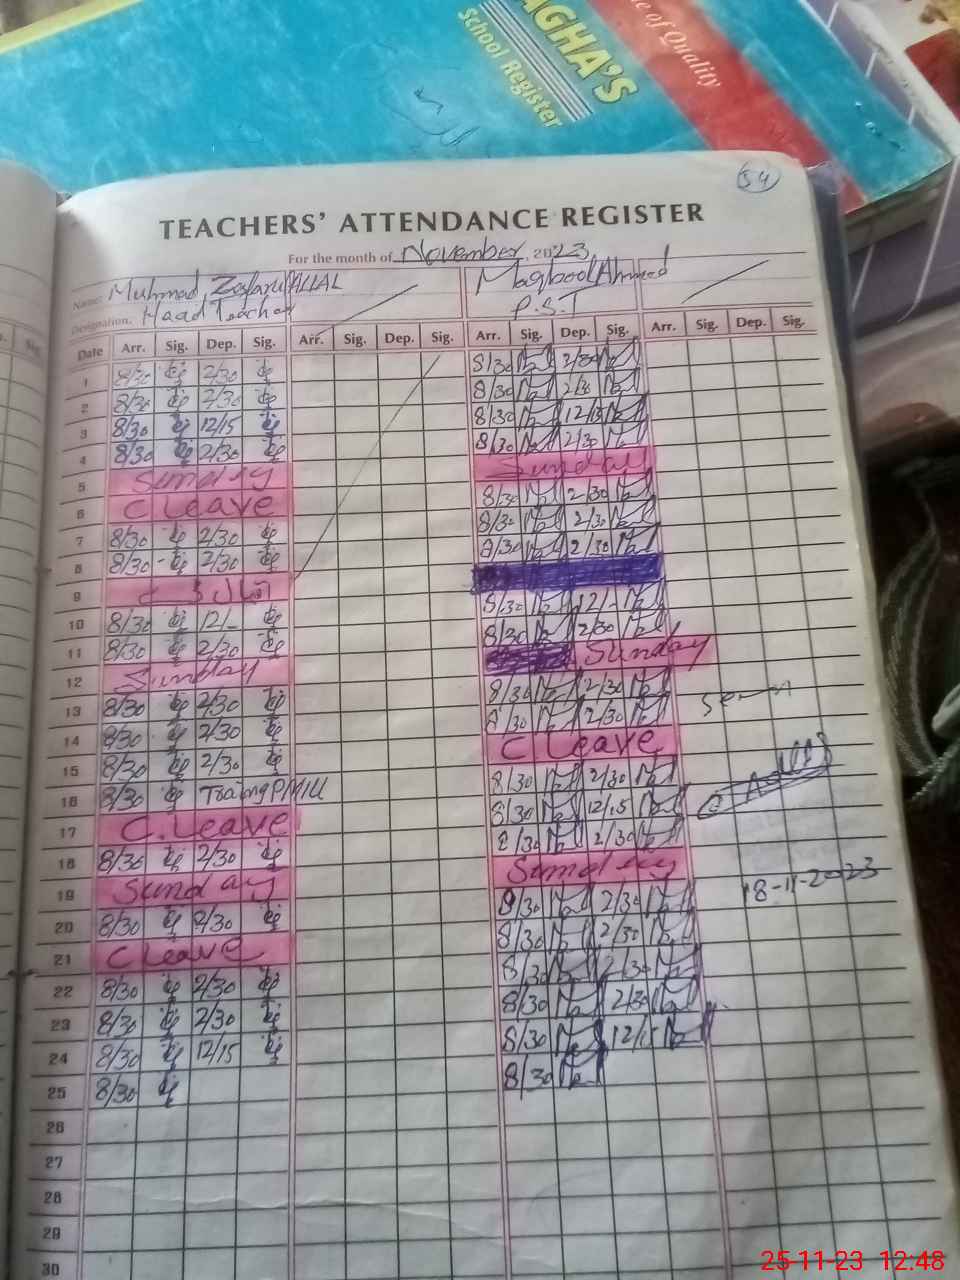 AGHA'S
School Register
e of Quality
54
TEACHERS' ATTENDANCE REGISTER
For the month of November 2023
Name: Muhmad Maqbool Ahmed
Designation. Head Teacher P.S.T
Date Arr. Sig. Dep. Sig. Arr. Sig. Dep. Sig. Arr. Sig. Dep. Sig. Arr. Sig. Dep. Sig.
1 8/30 2/30 8/30 2/30
2 8/30 2/30 8/30 2/30
3 8/30 12/15 8/30 12/15
4 8/30 2/30 8/30 2/30
5 Sunday Sunday
6 C Leave 8/30 2/30
7 8/30 2/30 8/30 2/30
8 8/30 2/30 8/30 2/30
9
10 8/30 12/- 8/30 12/-
11 8/30 2/30 8/30 2/30
12 Sunday Sunday
13 8/30 2/30 8/30 2/30
14 8/30 2/30 8/30 2/30
15 8/30 2/30 C Leave
16 8/30 PMIU 8/30 2/30
17 C.Leave 8/30 12/15
18 8/30 2/30 8/30 2/30
19 Sunday Sunday
20 8/30 2/30 8/30 2/30
21 C Leave 8/30 2/30
22 8/30 2/30 8/30 2/30
23 8/30 2/30 8/30 2/30
24 8/30 12/15 8/30 12/15
25 8/30 8/30
26
27
28
29
30
18-11-2023
25-11-23 12:48